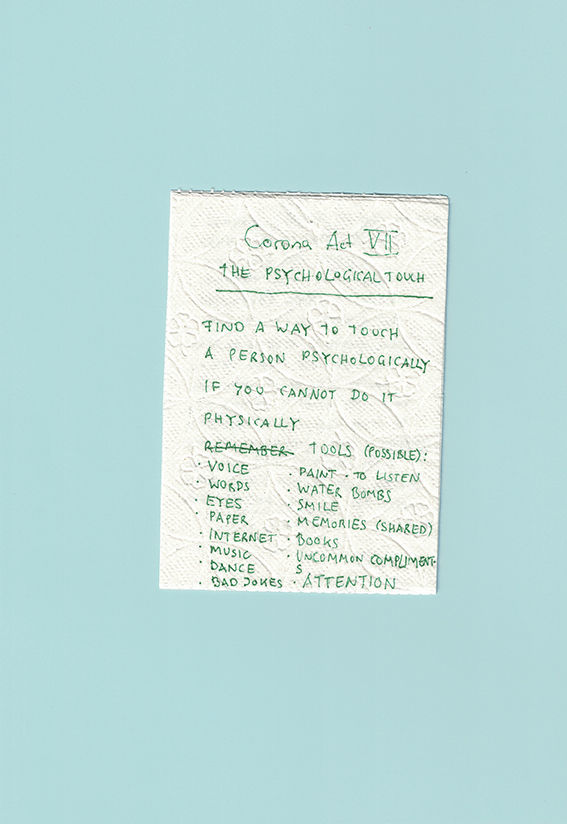 Corona Act VII
THE PSYCHOLOGICAL TOUCH
FIND A WAY TO TOUCH
A PERSON PSYCHOLOGICALLY
IF YOU CANNOT DO IT
PHYSICALLY
REMEMBER TOOLS (POSSIBLE):
· VOICE
· WORDS
· EYES
· PAPER
· INTERNET
· MUSIC
· DANCE
· BAD JOKES
· PAINT · TO LISTEN
· WATER BOMBS
· SMILE
· MEMORIES (SHARED)
· BOOKS
· UNCOMMON COMPLIMENT-
S
· ATTENTION